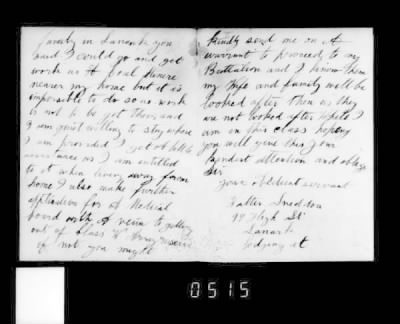 family in Lanark you
said I could go and get
work as A Coal Miner
nearer my home but it is
impossible to do so no work
is not to be got there and
I am quiet willing to stay where
I am provided I get
I am entitled
to it when living away from
home I also make further
application for A Medical
board with A view to getting
out of Class W Army reserve
if not you might
kindly send me on A
warrant to proceed to my
Battalion and I know then
my Wife and family will be
looked after then as they
are not looked after while I
am in this class hoping
you will give this your
kindest attention and oblige
Sir
your obedient servant
Walter Sneddon
99 High St
Lanark
lodging at
0515